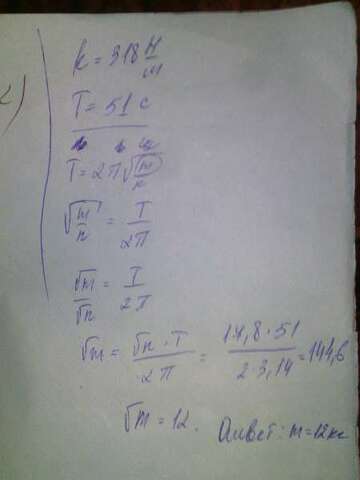 2)
k = 318 Н/м
T = 51 c
T = 2π√(m/k)
√(m/k) = T/2π
√m/√k = T/2π
√m = √k · T / 2π = 17,8 · 51 / 2 · 3,14 = 144,6
√m = 12. Ответ: m = 12 кг